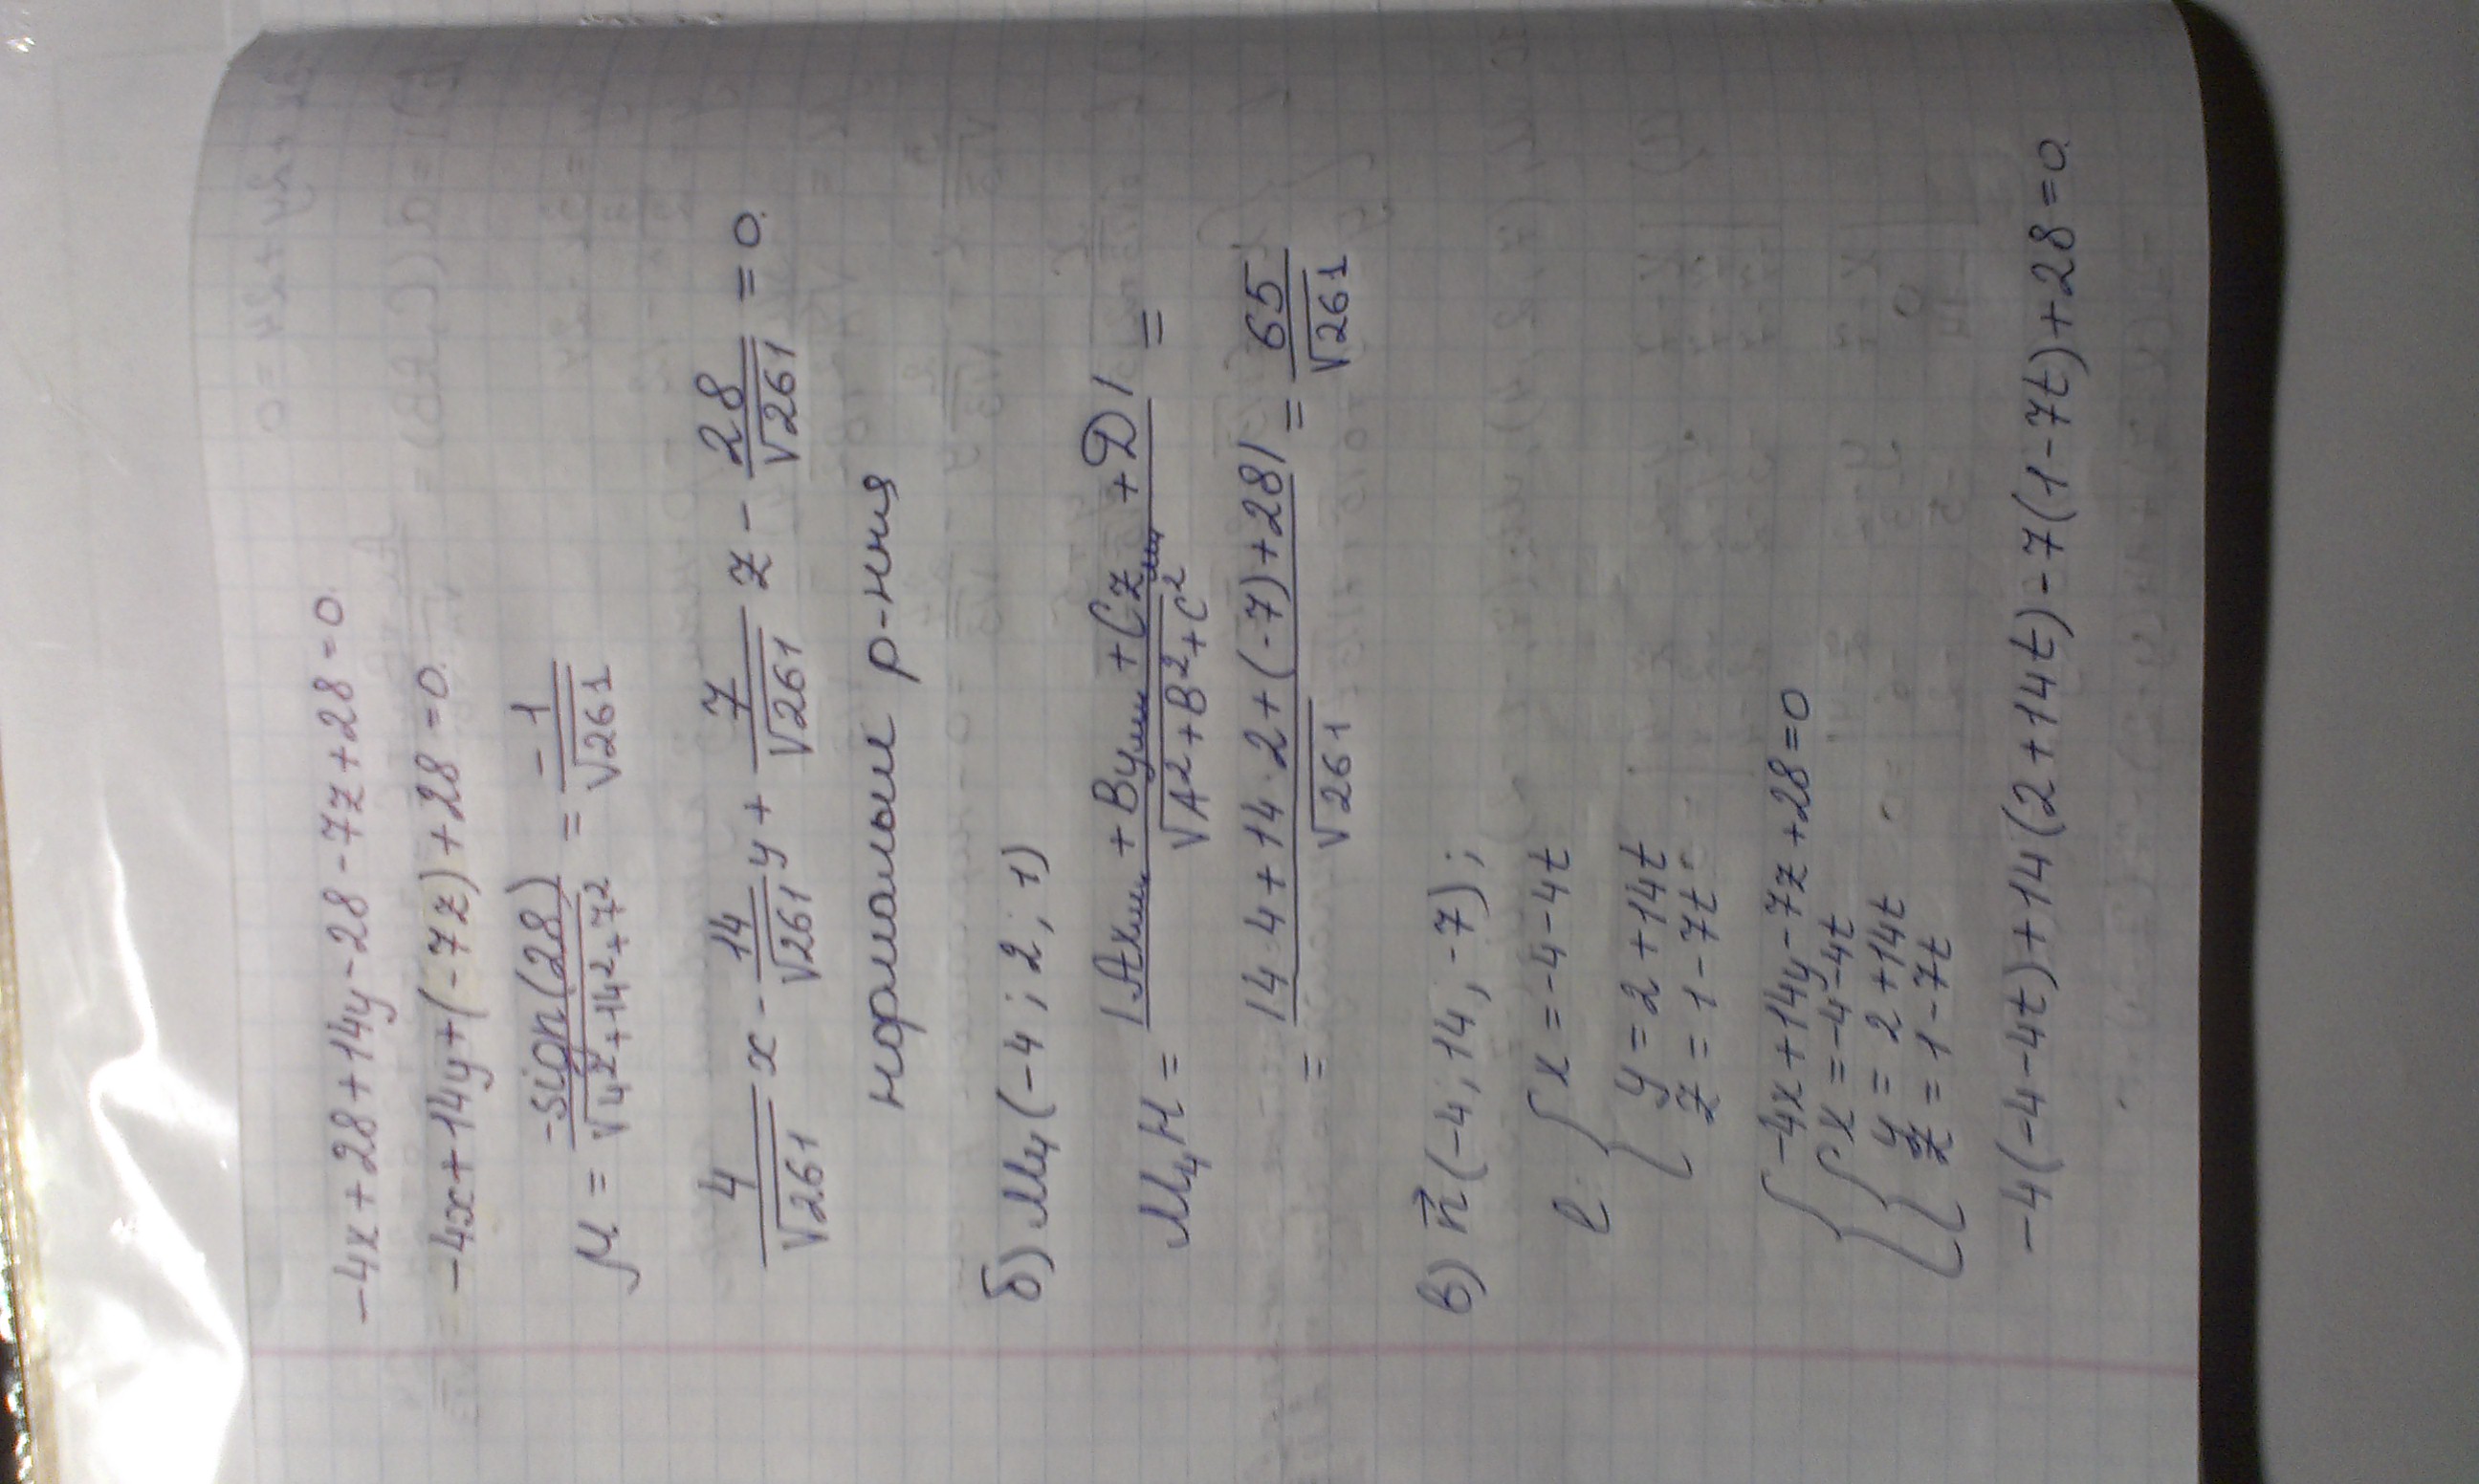 -4x+28+14y-28-7z+28=0.
-4x+14y+(-7z)+28=0.
μ = -sign(28)/√(4²+14²+7²) = -1/√261
4/√261 x - 14/√261 y + 7/√261 z - 28/√261 = 0.
нормальн р-ния
б) M₄(-4; 2; 1)
M₄H = |Axₘ₄ + Byₘ₄ + Czₘ₄ + D|/√(A²+B²+C²) =
= |4·4+14·2+(-7)+28|/√261 = 65/√261
в) n⃗(-4, 14, -7);
l: { x = -4-4t
y = 2+14t
z = 1-7t
{ -4x+14y-7z+28=0
{ x = -4-4t
y = 2+14t
z = 1-7t
-4(-4-4t)+14(2+14t)-7(1-7t)+28=0.